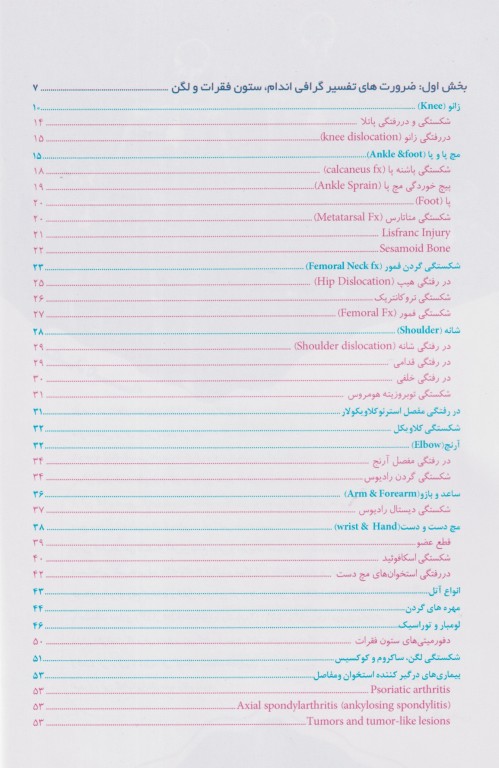 بخش اول: ضرورت های تفسیر گرافی اندام، ستون فقرات و لگن ۷
زانو (Knee) ۱۰
شکستگی و دررفتگی پاتلا ۱۴
دررفتگی زانو (knee dislocation) ۱۵
مچ پا و پا (Ankle &foot) ۱۵
شکستگی پاشنه پا (calcaneus fx) ۱۸
پیچ خوردگی مچ پا (Ankle Sprain) ۱۹
پا (Foot) ۲۰
شکستگی متاتارس (Metatarsal Fx) ۲۰
Lisfranc Injury ۲۱
Sesamoid Bone ۲۲
شکستگی گردن فمور (Femoral Neck fx) ۲۳
در رفتگی هیپ (Hip Dislocation) ۲۵
شکستگی تروکانتریک ۲۶
شکستگی فمور (Femoral Fx) ۲۷
شانه (Shoulder) ۲۸
در رفتگی شانه (Shoulder dislocation) ۲۹
در رفتگی قدامی ۲۹
در رفتگی خلفی ۳۰
شکستگی توبروزیته هومروس ۳۱
در رفتگی مفصل استرنوکلاویکولار ۳۱
شکستگی کلاویکل ۳۲
آرنج(Elbow) ۳۲
در رفتگی مفصل آرنج ۳۴
شکستگی گردن رادیوس ۳۴
ساعد و بازو(Arm & Forearm) ۳۶
شکستگی دیستال رادیوس ۳۷
مچ دست و دست(wrist & Hand) ۳۸
قطع عضو ۳۹
شکستگی اسکافوئید ۴۰
دررفتگی استخوان‌های مچ دست ۴۲
انواع آتل ۴۳
مهره های گردن ۴۴
لومبار و توراسیک ۴۶
دفورمیتی‌های ستون فقرات ۵۰
شکستگی لگن، ساکروم و کوکسیس ۵۱
بیماری‌های درگیر کننده استخوان ومفاصل ۵۳
Psoriatic arthritis ۵۳
Axial spondylarthritis (ankylosing spondylitis) ۵۳
Tumors and tumor-like lesions ۵۳